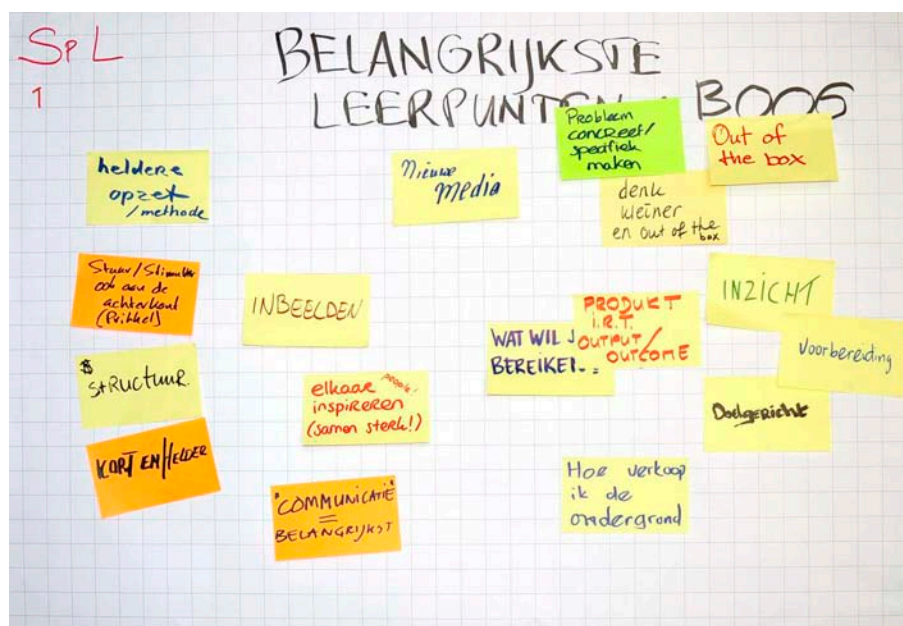 SPL
1
BELANGRIJKSTE
LEERPUNTEN BOOS
heldere
opzet
/methode
Nieuwe
media
Probleem
concreet/
specifiek
maken
Out of
the box
denk
kleiner
en out of the
box
Stuur/Stimuleer
ook aan de
achterkant
(Prikkel)
INBEELDEN
PRODUKT
I.R.T.
OUTPUT/
OUTCOME
INZICHT
WAT WIL J
BEREIKE
Voorbereiding
STRUCTUUR.
elkaar
inspireren
(samen sterk!)
Doelgericht
KORT EN/HELDER
"COMMUNICATIE"
=
BELANGRIJKST
Hoe verkoop
ik de
ondergrond